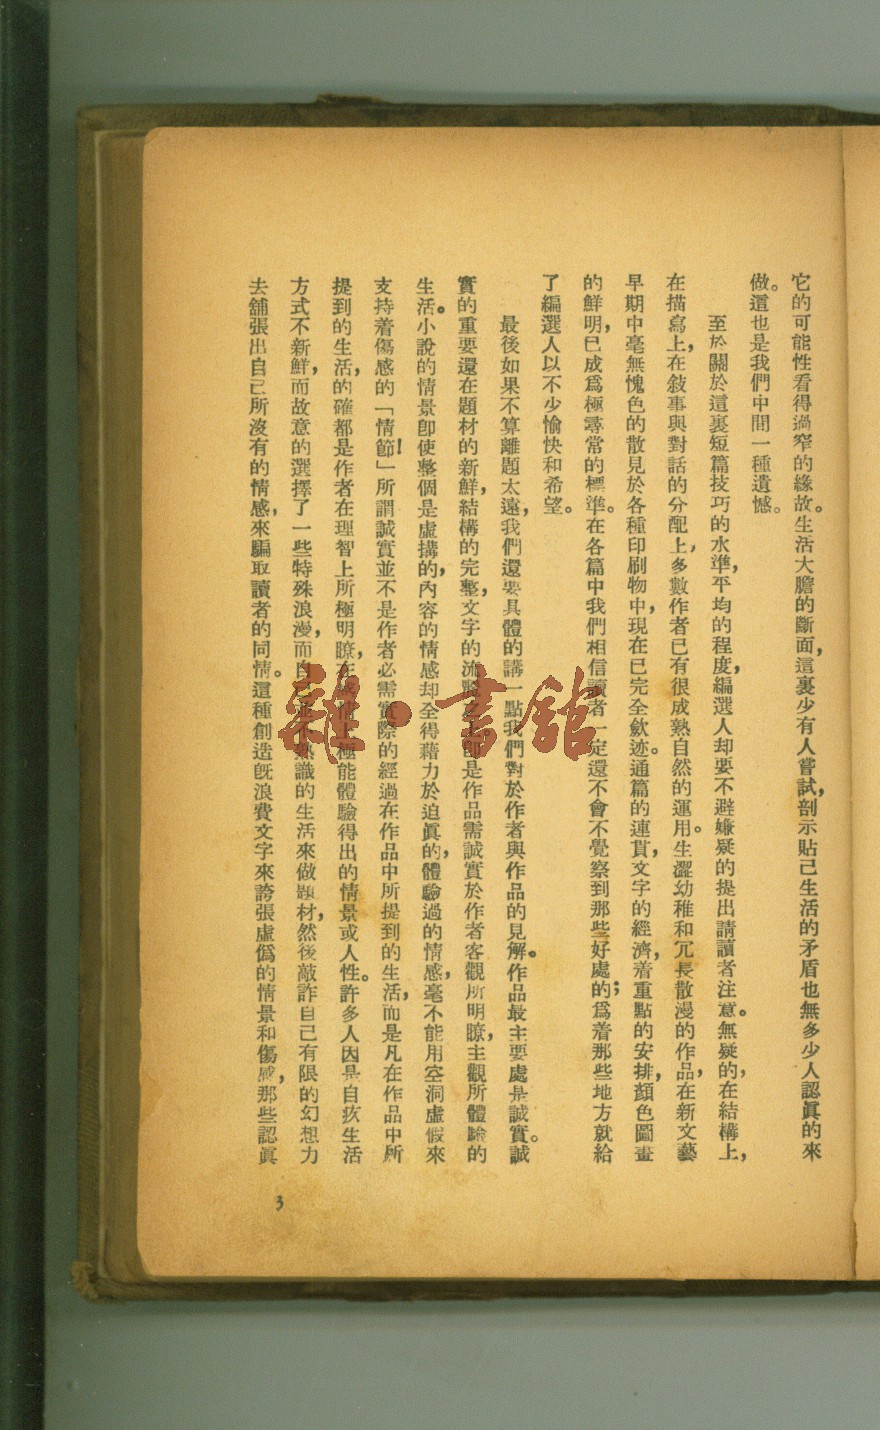 它的可能性看得過窄的緣故。生活大膽的斷面，這裏少有人嘗試，剖示貼己生活的矛盾也無多少人認眞的來
做。這也是我們中間一種遺憾。
至於關於這裏短篇技巧的水準，平均的程度，編選人却要不避嫌疑的提出請讀者注意。無疑的，在結構上，
在描寫上，在敍事與對話的分配上，多數作者已有很成熟自然的運用。生澀幼稚和冗長散漫的作品，在新文藝
早期中毫無愧色的散見於各種印刷物中，現在已完全歛迹。通篇的連貫，文字的經濟，着重點的安排，顏色圖畫
的鮮明，已成爲極尋常的標準。在各篇中我們相信讀者一定還不會不覺察到那些好處的；爲着那些地方就給
了編選人以不少愉快和希望。
最後如果不算離題太遠，我們還要具體的講一點我們對於作者與作品的見解。作品最主要處是誠實。誠
實的重要還在題材的新鮮，結構的完整，文字的流麗之上。卽是作品需誠實於作者客觀所明瞭，主觀所體驗的
生活。小說的情景卽使整個是虛搆的，內容的情感却全得藉力於迫眞的，體驗過的情感，毫不能用空洞虛假來
支持着傷感的「情節」！所謂誠實並不是作者必需實際的經過在作品中所提到的生活，而是凡在作品中所
提到的生活，的確都是作者在理智上所極明瞭，在感情上極能體驗得出的情景或人性。許多人因是自疚生活
方式不新鮮，而故意的選擇了一些特殊浪漫，而自己並不熟識的生活來做題材，然後敲詐自己有限的幻想力
去舖張出自己所沒有的情感，來騙取讀者的同情。這種創造旣浪費文字來誇張虛僞的情景和傷感，那些認眞
3
雜·書館